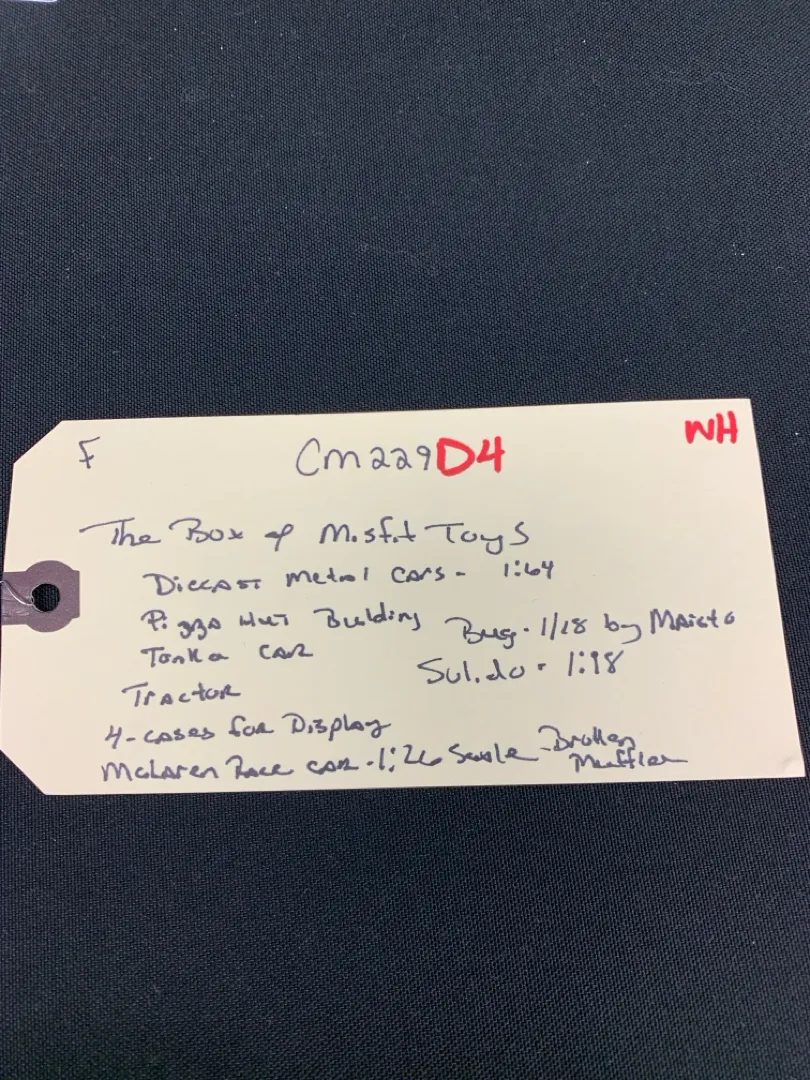 F CM229D4 WH
The Box of Misfit Toys
Diecast Metal Cars - 1:64
Pizza Hut Building
Bug - 1/18 by Maisto
Tonka Car
Solido - 1:18
Tractor
4-cases for Display
McLaren Race car - 1:26 Scale - Broken
Muffler